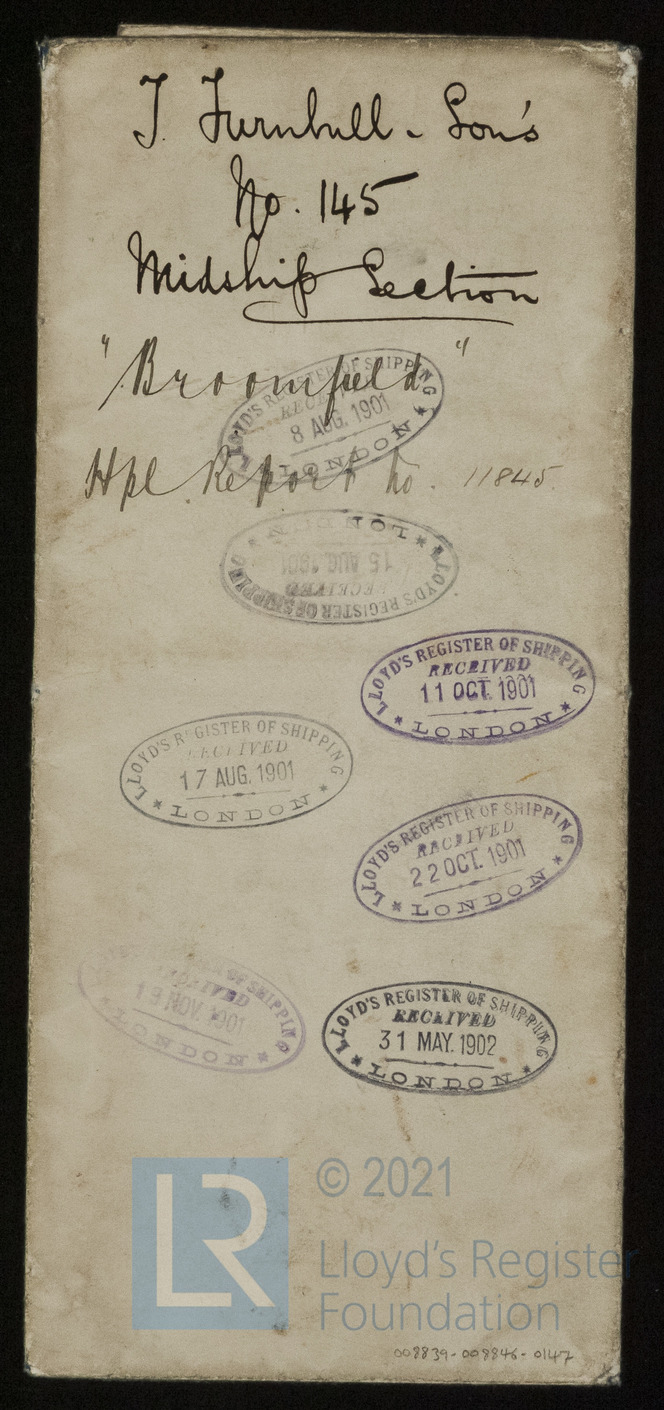 T. Turnbull - Son's
No. 145
Midship Section
"Broomfield"
LLOYD'S REGISTER OF SHIPPING
RECEIVED
8 AUG. 1901
LONDON
Hpl Report No. 11845
LLOYD'S REGISTER OF SHIPPING
RECEIVED
15 AUG. 1901
LONDON
LLOYD'S REGISTER OF SHIPPING
RECEIVED
11 OCT. 1901
LONDON
LLOYD'S REGISTER OF SHIPPING
RECEIVED
17 AUG. 1901
LONDON
LLOYD'S REGISTER OF SHIPPING
RECEIVED
22 OCT. 1901
LONDON
REGISTER OF SHIPPING
RECEIVED
NOV. 1901
LONDON
LLOYD'S REGISTER OF SHIPPING
RECEIVED
31 MAY. 1902
LONDON
LR
© 2021
Lloyd's Register
Foundation
008839-008846-0147